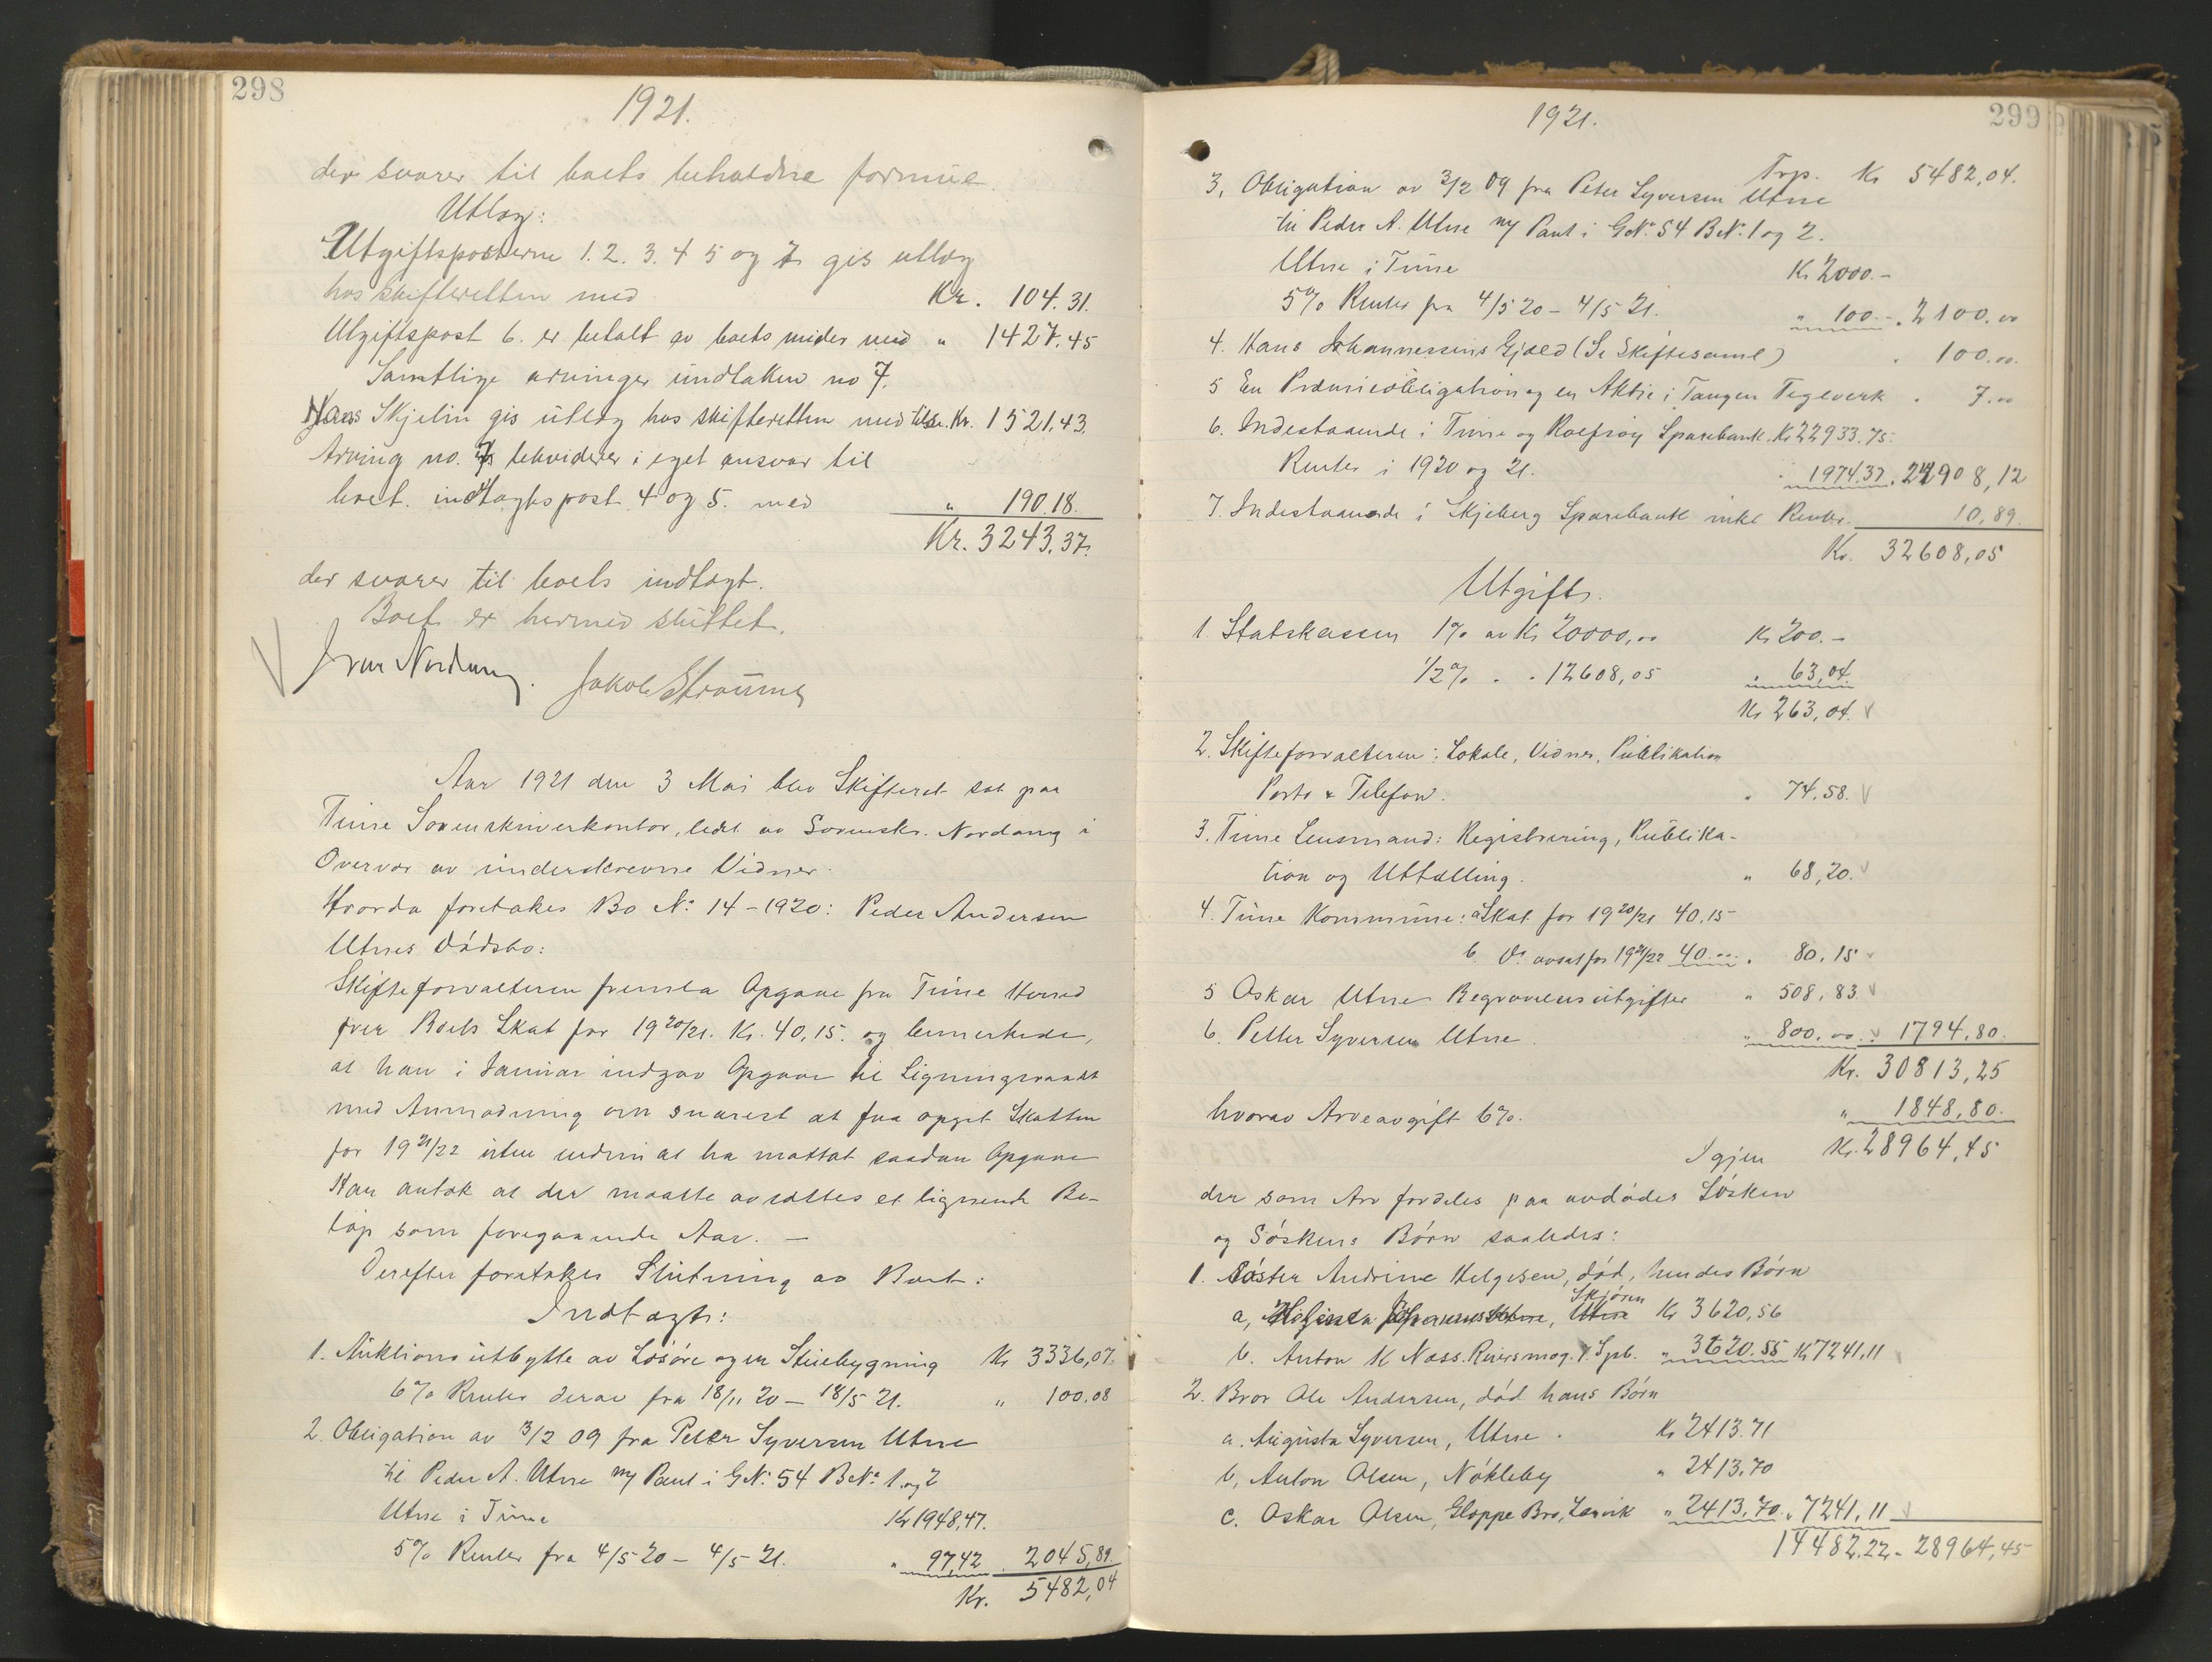 298
1921.
der svarer til boets beholdne formue.
Utlæg:
Utgiftsposterne 1. 2. 3. 4 5 og 7 gis utlæg
hos skifteretten med Kr. 104.31.
Utgiftspost 6. er betalt av boets midler med " 1427.45
Samtlige arvinger undtaken no 7.
Hans Skjelin gis utlæg hos skifteretten med tils. Kr. 1521,43.
Arving no. 7 likviderer i eget ansvar til
boet. indtægtspost 4 og 5. med " 190.18.
Kr. 3243.37.
der svarer til boets indtægt.
Boet er hermed sluttet.
Ivar Nordang. Jakob Strømme
Aar 1921 den 3 Mai blev Skifteret sat paa
Tune Sorenskriverkontor, ledet av Sorenskr. Nordang i
Overvær av underskrevne Vidner.
Hvorda foretakes Bo No 14-1920: Peder Andersen
Utnes Dødsbo:
Skifteforvalteren fremla Opgave fra Tune Herred
over Boets Skat for 1920/21. Kr. 40,15. og bemerkede,
at han i Januar indgav Opgave til Ligningsraadet
med Anmodning om snarest at faa opgit Skatten
for 1921/22 uten endnu at ha mottat saadan Opgave
Han antok at der maatte avsættes et lignende Be-
løp som foregaaende Aar. —
Derefter foretakes Slutning av Boet:
Indtægt:
1. Auktionsutbytte av Løsøre og en Stuebygning Kr 3336,07.
6% Renter derav fra 18/11 20 — 18/5 21. " 100.08
2. Obligation av 3/2 09 fra Peter Syversen Utne
til Peder A. Utne m/ Pant i GNo 54 BNo 1 og 2
Utne i Tune Kr 1948,47.
5% Renter fra 4/5 20 — 4/5 21. " 97,42 . 2045,89.
Kr. 5482,04
299
1921.
Trp. Kr 5482,04.
3, Obligation av 3/2 09 fra Peter Syversen Utne
til Peder A. Utne m/ Pant i GNo 54 BNo 1 og 2.
Utne i Tune Kr 2000.-
5% Renter fra 4/5 20 — 4/5 21. " 100.- . 2100.00
4. Hans Johannessens Gjæld (Se Skiftesaml) . 100.00.
5 En Præmieobligation og en Aktie i Tangen Teglverk . 7.00
6. Indestaaende i Tune og Rolfsøy Sparebank. Kr 22933.75.
Renter i 1920 og 21. . 1974.37 . 24908,12
7. Indestaaende i Skjeberg Sparebank inkl Renter. 10,89.
Kr. 32608,05
Utgift.
1. Statskassen 1% av Kr 20000,00 Kr 200.-
1/2% . . 12608,05 . 63,04.
Kr 263,04.
2. Skifteforvalteren: Lokale, Vidner, Publikation
Porto & Telefon. . 74.58.
3. Tune Lensmand: Registrering, Publika-
tion og Uttælling. " 68,20.
4. Tune Kommune: a Skat for 1920/21 40.15
b. Do avsat for 1921/22 40.00 . 80.15
5 Oskar Utne Begravelsesutgifter " 508,83
6. Petter Syversen Utne " 800.00 . 1794.80.
Kr. 30813,25
hvorav Arveavgift 6%. " 1848,80.
Igjen Kr. 28964,45
der som Arv fordeles paa avdødes Søsken
og Søskens Børn saaledes:
1. Søster Andrine Helgesen, død, hendes Børn
a, Utne Skjøren Kr 3620,56
b. Anton K Næss. Spb. " 3620.55 Kr 7241,11
2. Bror Ole Andersen, død hans Børn
a. Augusta Syversen, Utne . Kr 2413.71
b, Anton Olsen, Nøkleby " 2413.70
c. Oskar Olsen, Gloppe Bro, Lervik " 2413.70. " 7241,11
14482.22 - 28964,45